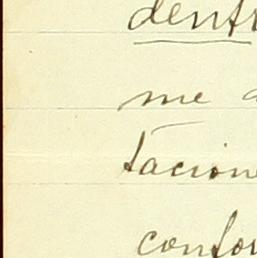 dentr
me a
tacione
confor